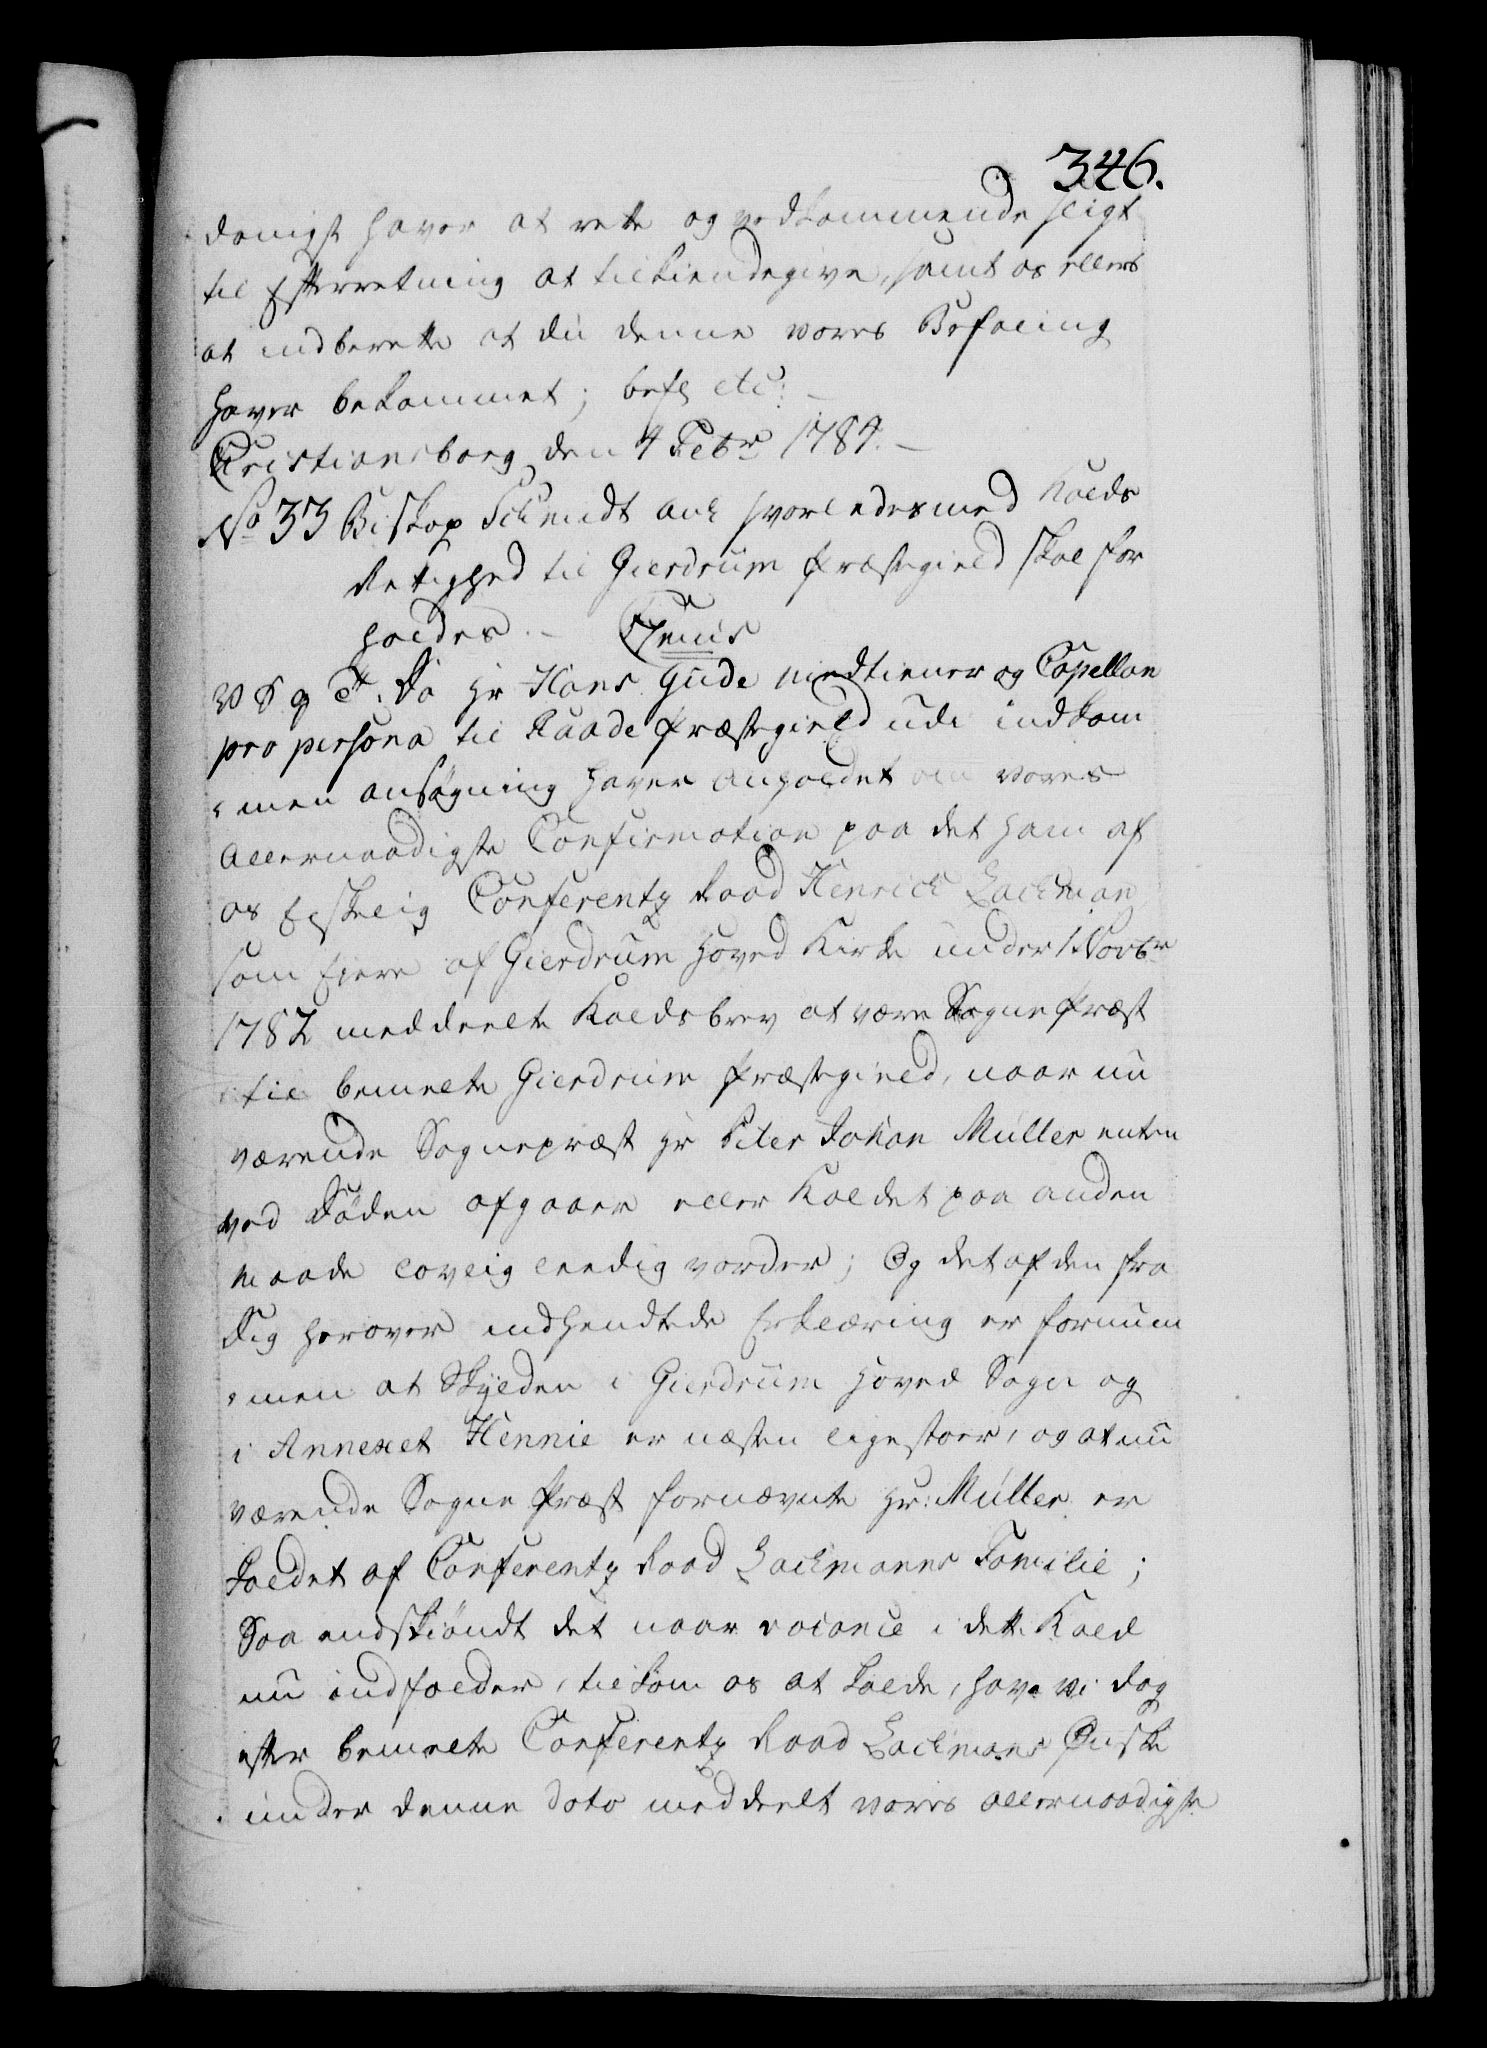 346.
danigst haver at rette og vedkommende sligt
til Efterretning at tilkiendegive, samt os ellers
at indberette at du denne vores Befaling
haver bekommet; befl etc: –
Christiansborg den 4 Febr 1784. –
No 33 Biskop Schmidt ank hvorledes med Kalds
Retighed til Gierdrum Præstegield skal for
holdes. – Chr:
V S g T. Da Hr Hans Gude medtiener og Capellan
pro persona til Raade Præstegield udi indkom
=men ansøgning haver anholdet om vores
Allernaadigste Confirmation paa det ham af
os Elskelig Conferentz Raad Henrich Lachman
som Eiere af Gierdrum Hoved Kirke under 1 Novbr
1782 meddeelte Kaldsbrev at være Sogne Præst
til bemelte Gierdrum Præstegield, naar nu
værende Sognepræst Hr Peter Johan Müller enten
ved Døden afgaaer eller Kaldet paa anden
Maade lovlig leedig vorder; Og det af den fra
Dig herover indhendtede Erklæring er fornum
=men at Skylden i Gierdrum Hoved Sogn og
i Annexet Hennie er næsten ligestoer, og at nu
værende Sogne Præst fornævnte Hr: Müller er
kaldet af Conferentz Raad Lachmanns Familie;
Saa endskiøndt det naar vacance i dette Kald
nu indfalder, tilkom os at kalde, have vi dog
efter bemelte Conferentz Raad Lachmans Ønske
under denne dato meddeelt vores allernaadigste